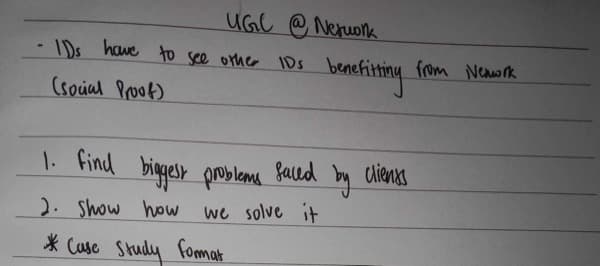 UGC @ Network
- IDs have to see other IDs benefitting from Network
(social proof)
1. Find biggest problems faced by clients
2. Show how we solve it
* Case Study format